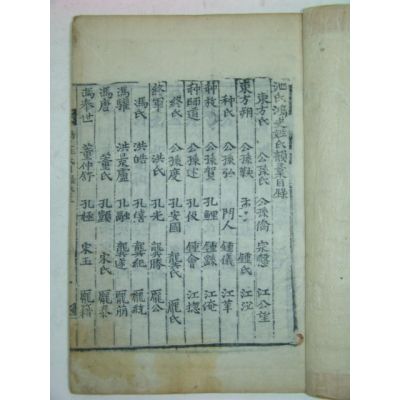 池氏鴻史姓氏韻彙目錄
東方氏 公孫氏 公孫僑 宗慤 江公望
東方朔 公孫鞅 鍾氏 江泌
种氏 公孫弘 門人 鍾儀 江革
种放 公孫賀 孔鯉 鍾繇 江淹
种師道 公孫述 孔伋 鍾會 江摠
終氏 公孫慶 孔安國 龔氏 龐氏
終軍 洪氏 孔光 龔勝 龐公
馮氏 洪皓 孔僖 龔紀 龐統
馮驩 洪景盧 孔融 龔遂 龐萌
馮唐 董氏 孔顗 宋氏 龐恭
馮奉世 董仲舒 孔極 宋玉 龐籍